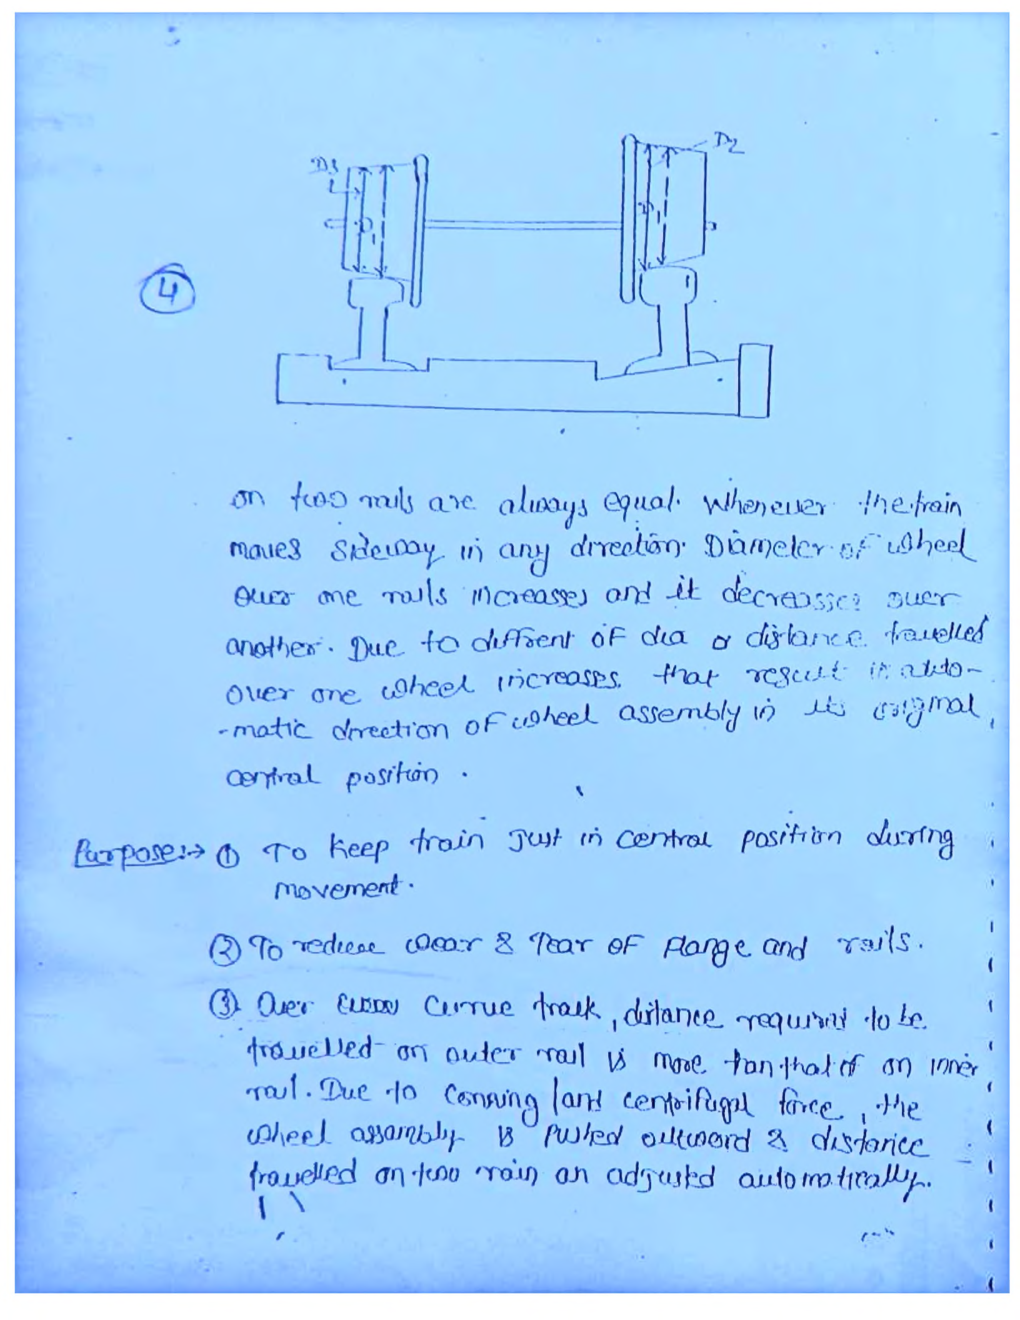 D1
D2
D1
D1
4
on two rails are always equal. Whenever the train
moves Sideway in any direction. Diameter of wheel
over one rails increases and it decreases over
another. Due to diffrent of dia & distance travelled
over one wheel increases that result in auto-
-matic direction of wheel assembly in its original
central position.
Purpose:→ ① To keep train Just in central position during
movement.
② To reduce wear & Tear of flange and rails.
③ Over curve track, distance required to be
travelled on outer rail is more than that of on inner
rail. Due to Conning/and centrifugal force, the
wheel assembly is Pushed outward & distance
travelled on two rain an adjusted automatically.